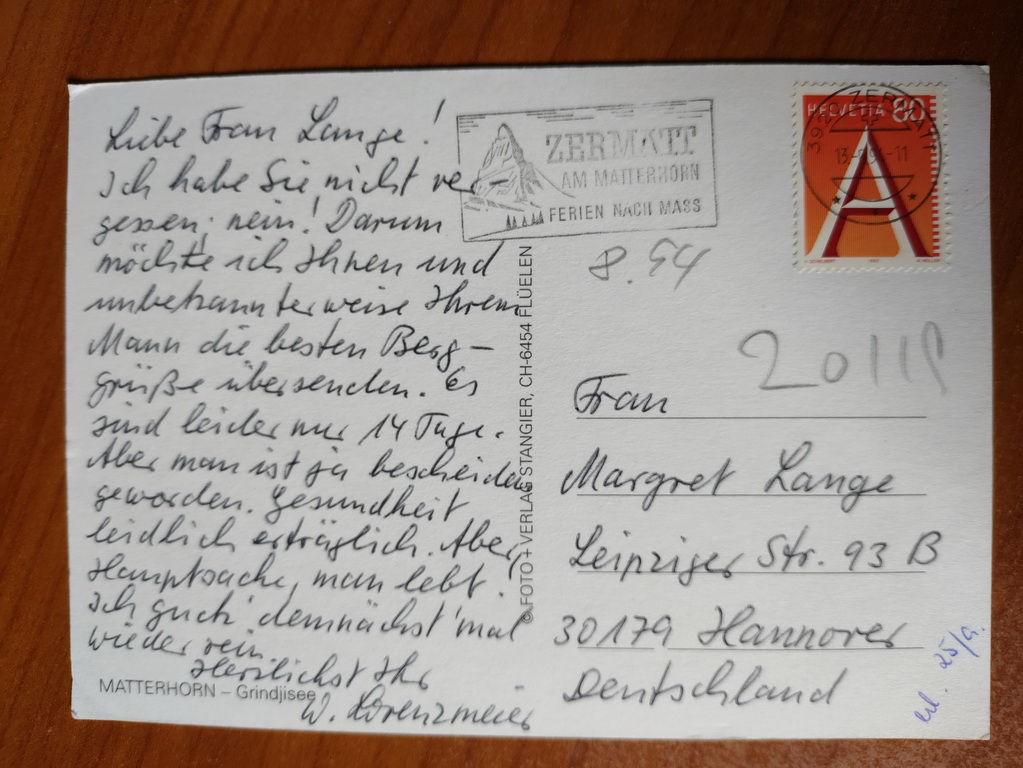 Liebe Frau Lange!
Ich habe Sie nicht ver-
gessen, nein! Darum
möchte ich Ihnen und
unbekannterweise Ihrem
Mann die besten Berg-
grüße übersenden. Es
sind leider nur 14 Tage.
Aber man ist ja bescheiden
geworden. Gesundheit
leidlich erträglich. Aber,
Hauptsache, man lebt!
Ich guck' demnächst 'mal
wieder rein
Herzlichst Ihr
W. Lorenzmeier
MATTERHORN – Grindjisee
© FOTO + VERLAG STANGIER, CH-6454 FLÜELEN
ZERMATT
AM MATTERHORN
FERIEN NACH MASS
HELVETIA 80
A
ZERMATT
8.94
Frau
Margret Lange
Leipziger Str. 93 B
30179 Hannover
Deutschland
25/9.